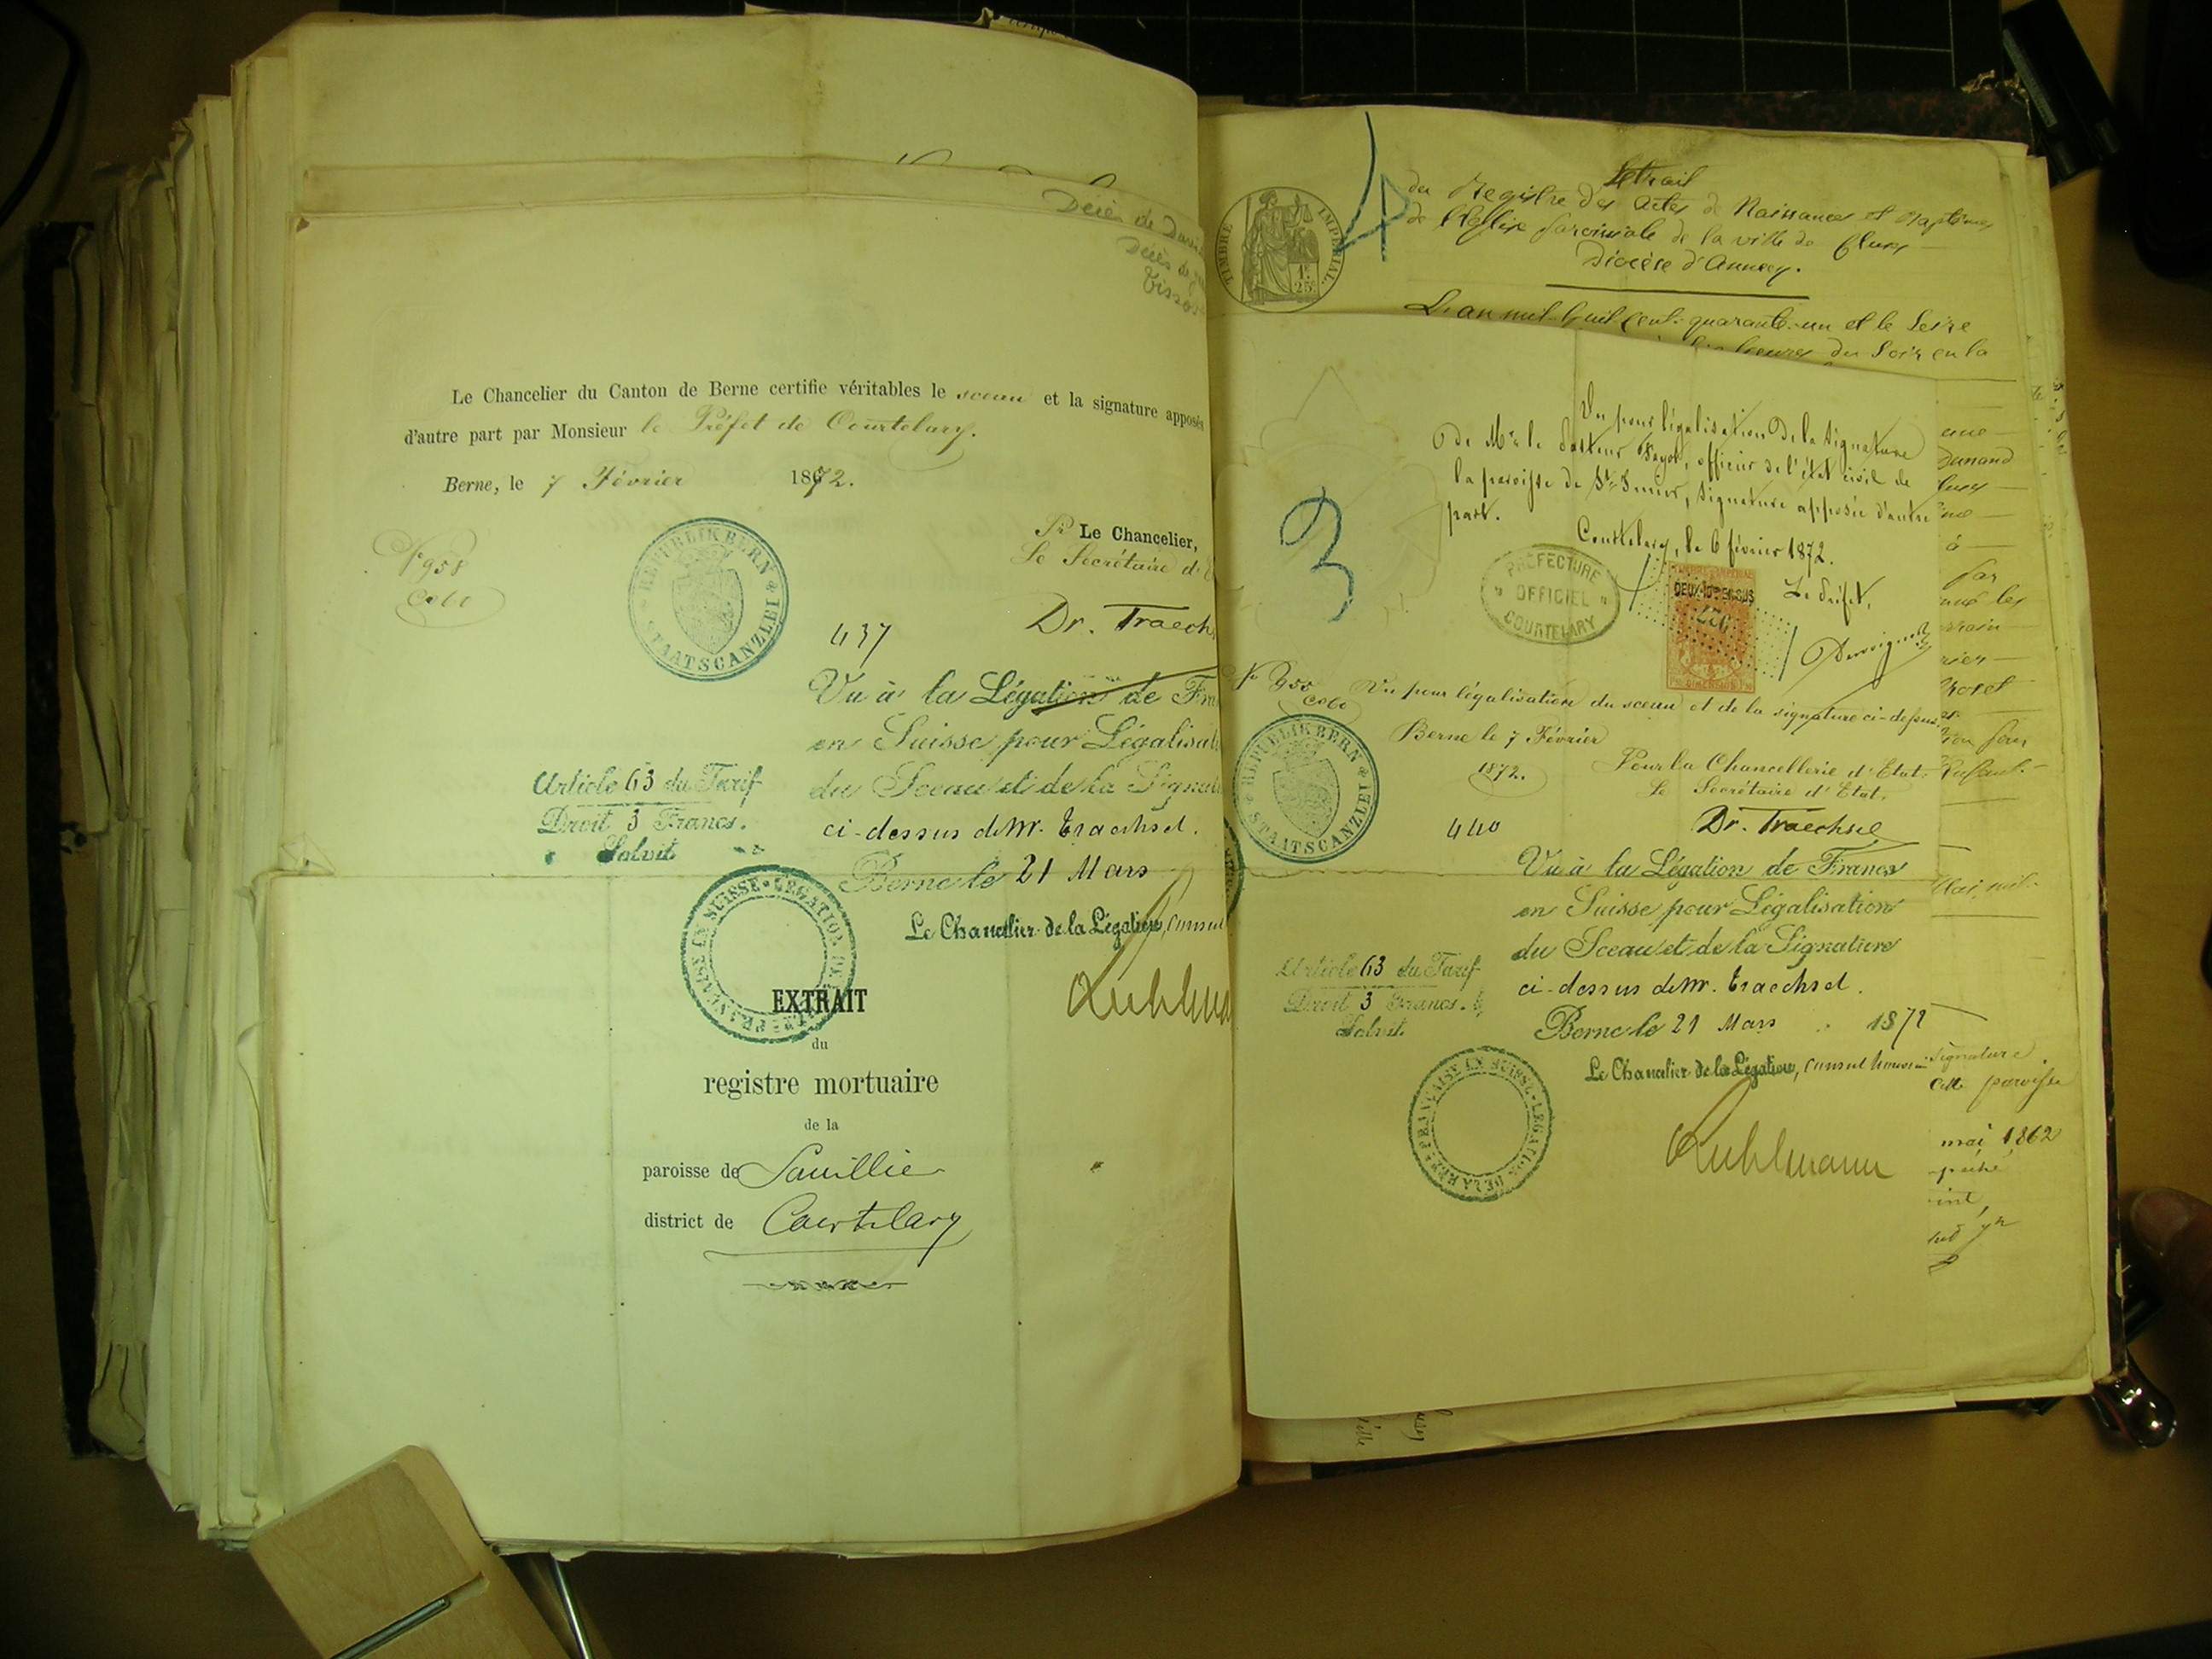 Décès de
Décès de
Le Chancelier du Canton de Berne certifie véritables le sceau et la signature apposés
d'autre part par Monsieur le Préfet de Courtelary.
Berne, le 7 Février 1872.
Pr Le Chancelier,
Le Secrétaire d'
N° 958
REPUBLIK BERN
STAATSCANZLEI
Dr. Traech
437
Vu à la Légation de Fra
en Suisse pour Légalisat
du Sceau et de la Signat
ci-dessus de Mr. Traechsel.
Article 63 du Tarif
Droit 3 Francs.
Solvit
Berne le 21 Mars
Le Chancelier de la Légation, Consul
FRANÇAISE EN SUISSE LEGATION DE LA REP
EXTRAIT
du
registre mortuaire
de la
paroisse de
district de Courtelary
TIMBRE IMPERIAL
1F.
25c
4
Extrait
du Registre des Actes de Naissances et Baptêmes
de l'Eglise paroissiale de la ville de Cluses
Diocèse d'Annecy.
L'an mil huit cent quarante-un et le seize
heures du soir en la
Vu pour légalisation de la signature
de Mr. le pasteur officier de l'état civil de
la paroisse de St. Imier, signature apposée d'autre
part.
Courtelary, le 6 février 1872.
3
PRÉFECTURE
OFFICIEL
COURTELARY
Le Préfet,
Vu pour légalisation du sceau et de la signature ci-dessus.
Berne le 7 Février
1872.
Pour la Chancellerie d'Etat.
Le Secrétaire d'Etat.
REPUBLIK BERN
STAATSCANZLEI
440
Dr. Traechsel
Vu à la Légation de France
en Suisse pour Légalisation
du Sceau et de la Signature
ci-dessus de Mr. Traechsel.
Article 63 du Tarif
Droit 3 Francs.
Solvit.
Berne le 21 Mars 1872
Le Chancelier de la Légation, Consul honor
FRANÇAISE EN SUISSE LEGATION DE LA REP
Kuhlmann
signature
mai 1862